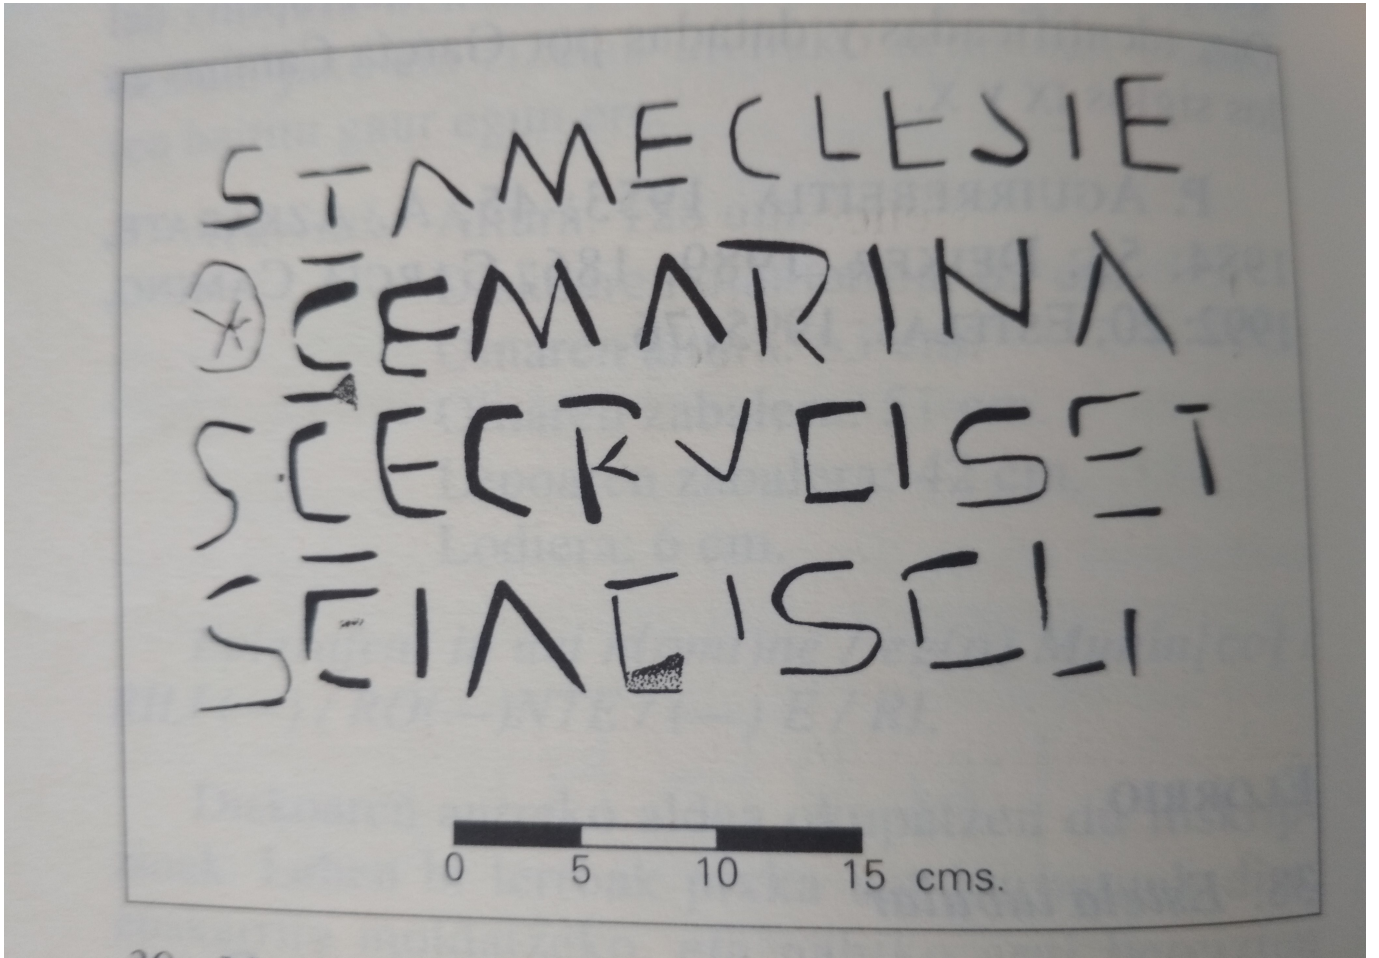 STAMECLESIE
C̄EMARINA
SC̄ECRVCISET
SC̄IACISCLI
0 5 10 15 cms.